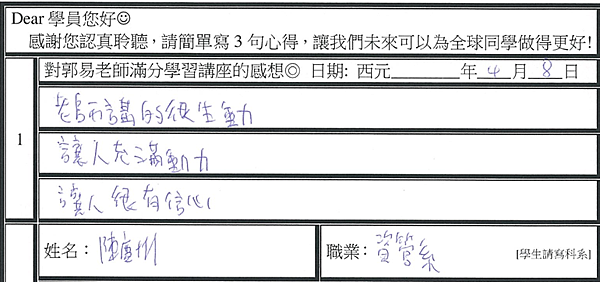 Dear 學員您好☺
感謝您認真聆聽，請簡單寫3句心得，讓我們未來可以為全球同學做得更好!
對郭易老師滿分學習講座的感想◎ 日期: 西元________年 4 月 8 日
1
老師講的很生動
讓人充滿動力
讓人很有信心
姓名： 陳
職業： 資管系 [學生請寫科系]